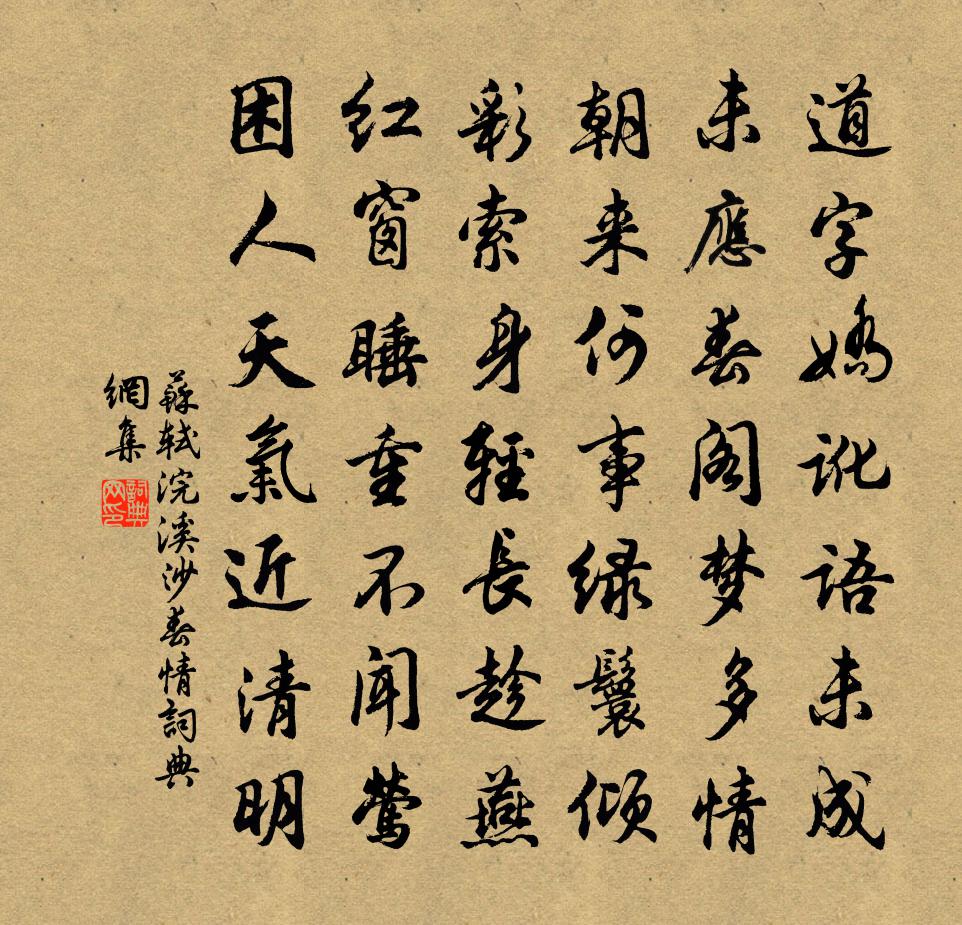 道字嬌訛語未成
未應春阁梦多情
朝来何事绿鬟倾
彩索身輕長趁燕
红窗睡重不聞莺
困人天氣近清明
蘇轼浣溪沙春情詞典
網集
詞典
网印